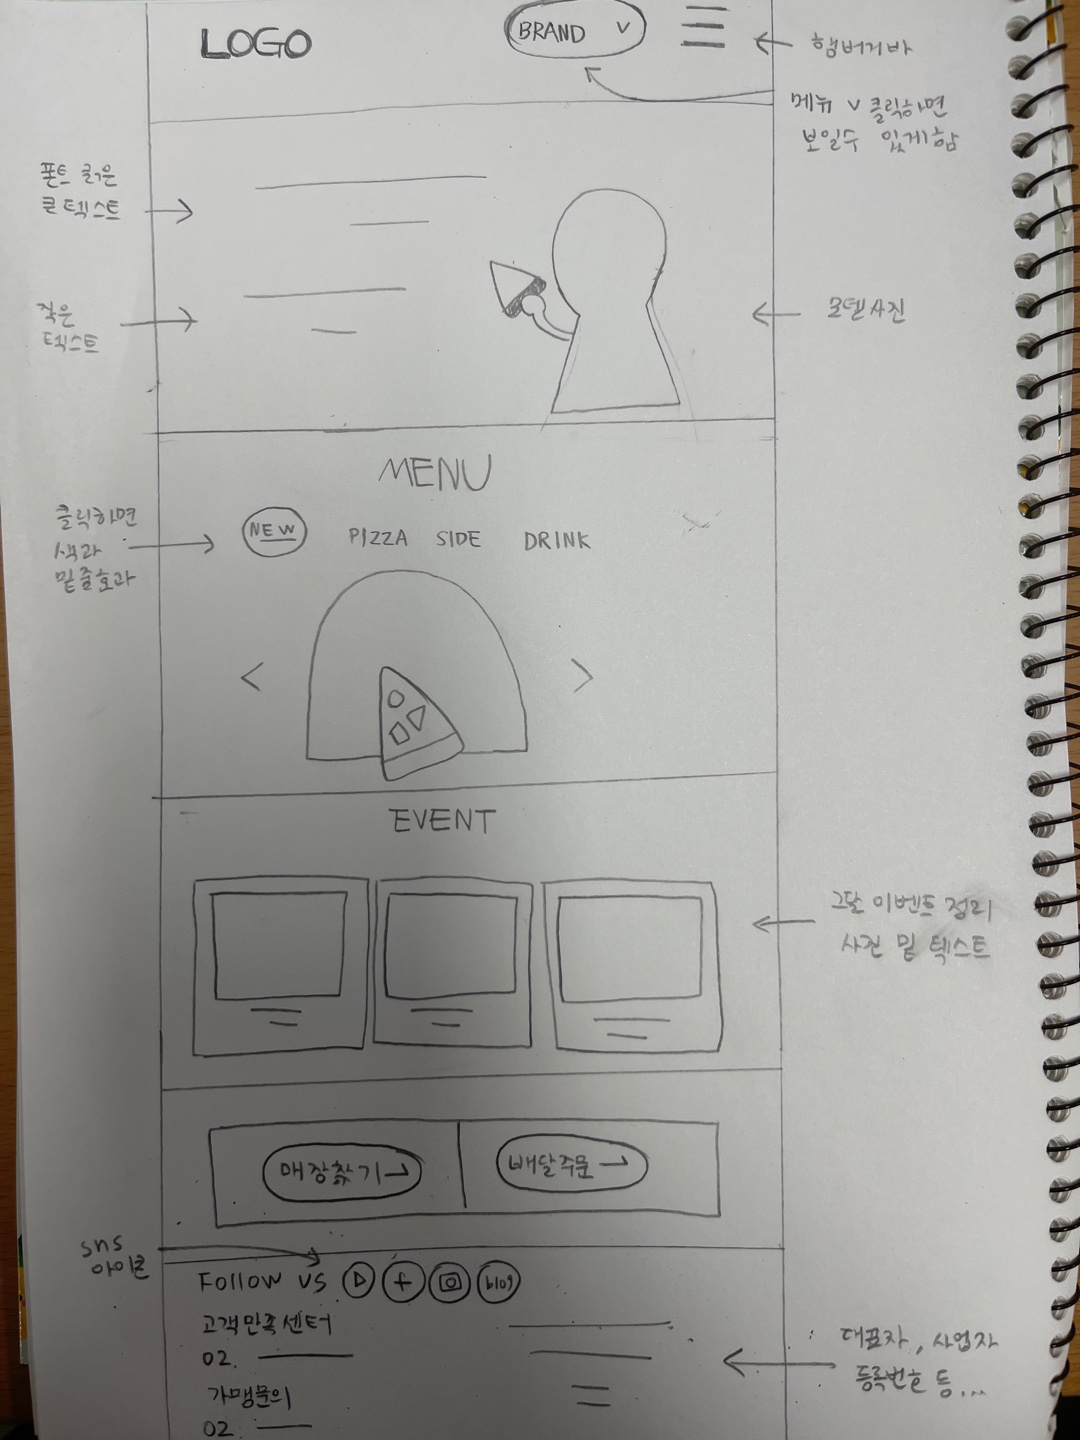 LOGO
BRAND V
햄버거바
메뉴 V 클릭하면
보일수 있게함
폰트 굵은
큰 텍스트
작은
텍스트
모델사진
MENU
클릭하면
색과
밑줄효과
NEW PIZZA SIDE DRINK
< >
EVENT
그달 이벤트 정리
사진 밑 텍스트
매장찾기→
배달주문→
sns
아이콘
Follow us
blog
고객만족센터
02.
가맹문의
02.
대표자, 사업자
등록번호 등...